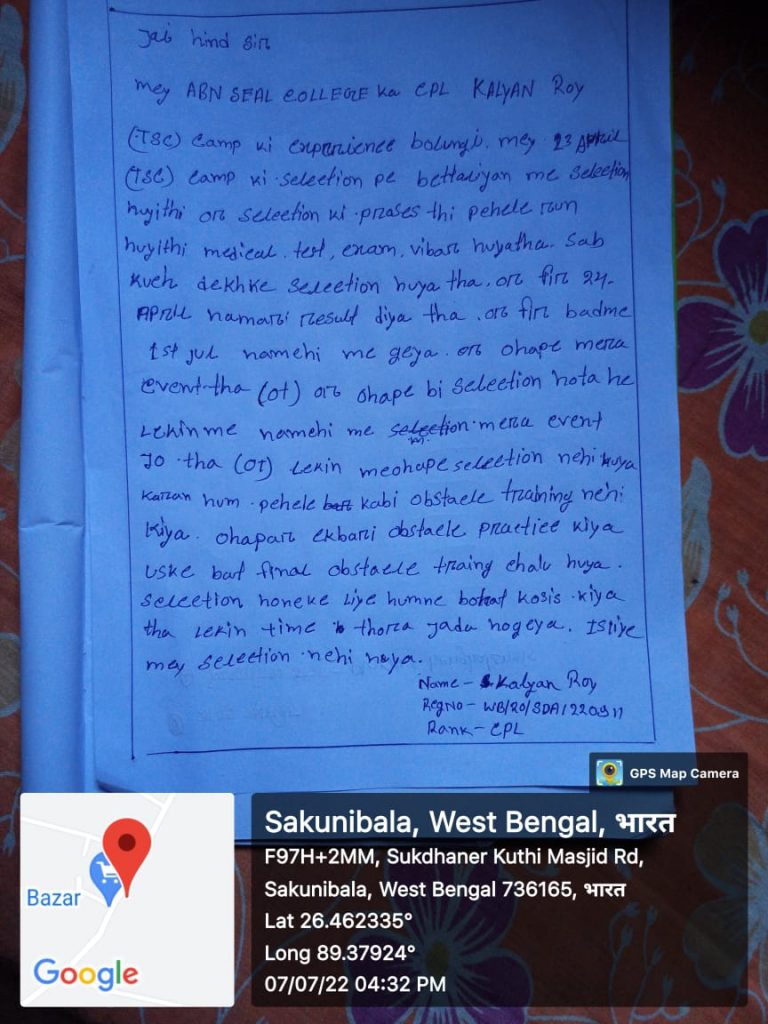 Jai hind sir
mey ABN SEAL COLLEGE ka CPL KALYAN Roy
(TSC) camp ki experience bolungi. mey 23 April
(TSC) camp ki selection pe bettaliyan me selection
huyithi or selection ki prases thi pehele run
huyithi medical. test, exam, vibar huyatha. Sab
kuch dekhke selection huya tha. or fir 24-
April hamari result diya tha. or fir badme
1st jul namehi me geya. or ohape mera
event-tha (ot) or ohape bi selection hota he
Lekin me namehi me mera event
Jo tha (OT) Lekin me ohape selection nehi huya
karan hum pehele kabi obstacle training nehi
kiya. ohapar ekbari obstacle practice kiya
uske bat final obstacle traing chalu huya.
selection honeke liye humne bohat kosis kiya
tha lekin time thora jada hogeya. Isliye
mey selection nehi huya.
Name - Kalyan Roy
RegNo - WB/20/SDA/220911
Rank - CPL
GPS Map Camera
Sakunibala, West Bengal, भारत
F97H+2MM, Sukdhaner Kuthi Masjid Rd,
Sakunibala, West Bengal 736165, भारत
Lat 26.462335°
Long 89.37924°
07/07/22 04:32 PM
Bazar
Google